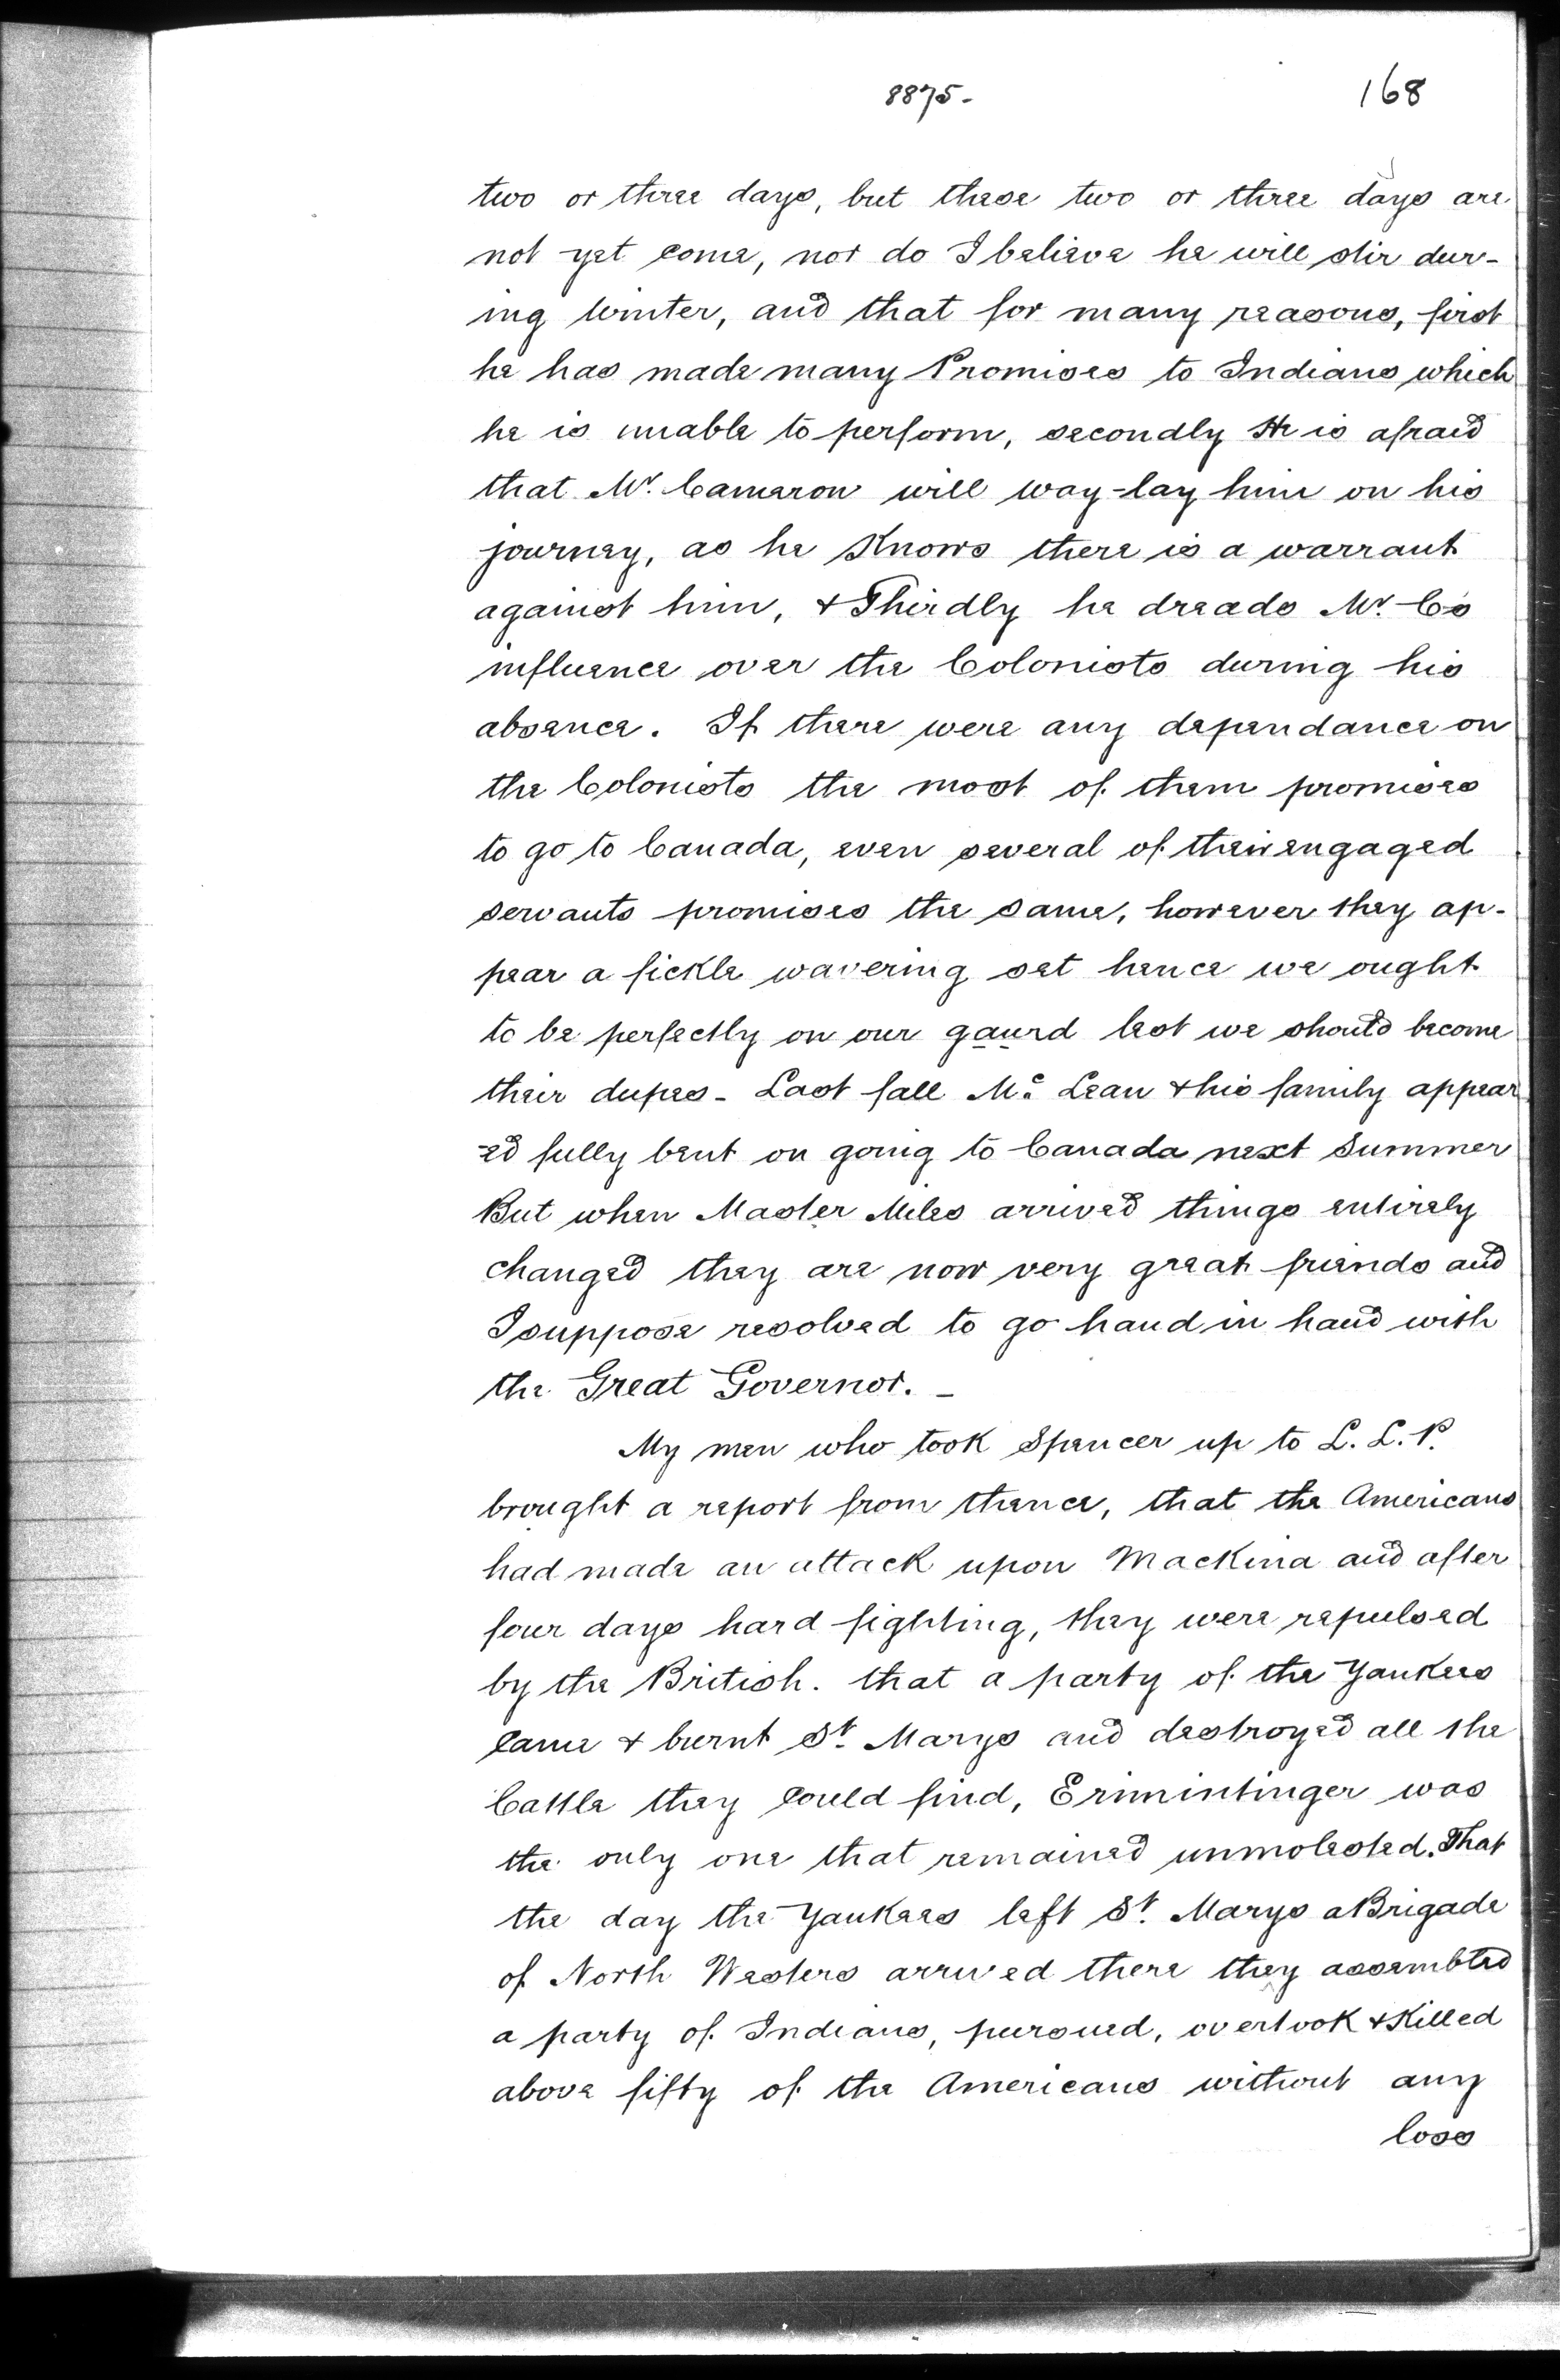 8875- 168
two or three days, but these two or three days are
not yet come, nor do I believe he will stir dur-
ing winter, and that for many reasons, first
he has made many Promises to Indians which
he is unable to perform, secondly He is afraid
that Mr. Cameron will way-lay him on his
journey, as he Knows there is a warrant
against him, & Thirdly he dreads Mr. C's
influence over the Colonists during his
absence. If there were any dependance on
the Colonists the most of them promises
to go to Canada, even several of their engaged
servants promises the same, however they ap-
pear a fickle wavering set hence we ought
to be perfectly on our gaurd lest we should become
their dupes - Last fall Mc. Lean & his family appear
-ed fully bent on going to Canada next Summer
But when Master Miles arrived things entirely
changed they are now very great friends and
I suppose resolved to go hand in hand with
the Great Governor. -
My men who took Spencer up to L. L. P.
brought a report from thence, that the Americans
had made an attack upon Mackina and after
four days hard fighting, they were repulsed
by the British. that a party of the Yankees
came & burnt St. Marys and destroyed all the
Cattle they could find, Erimintinger was
the only one that remained unmolested. That
the day the Yankees left St. Marys a Brigade
of North Westers arrived there they assembled
a party of Indians, pursued, overtook & Killed
above fifty of the Americans without any
loss